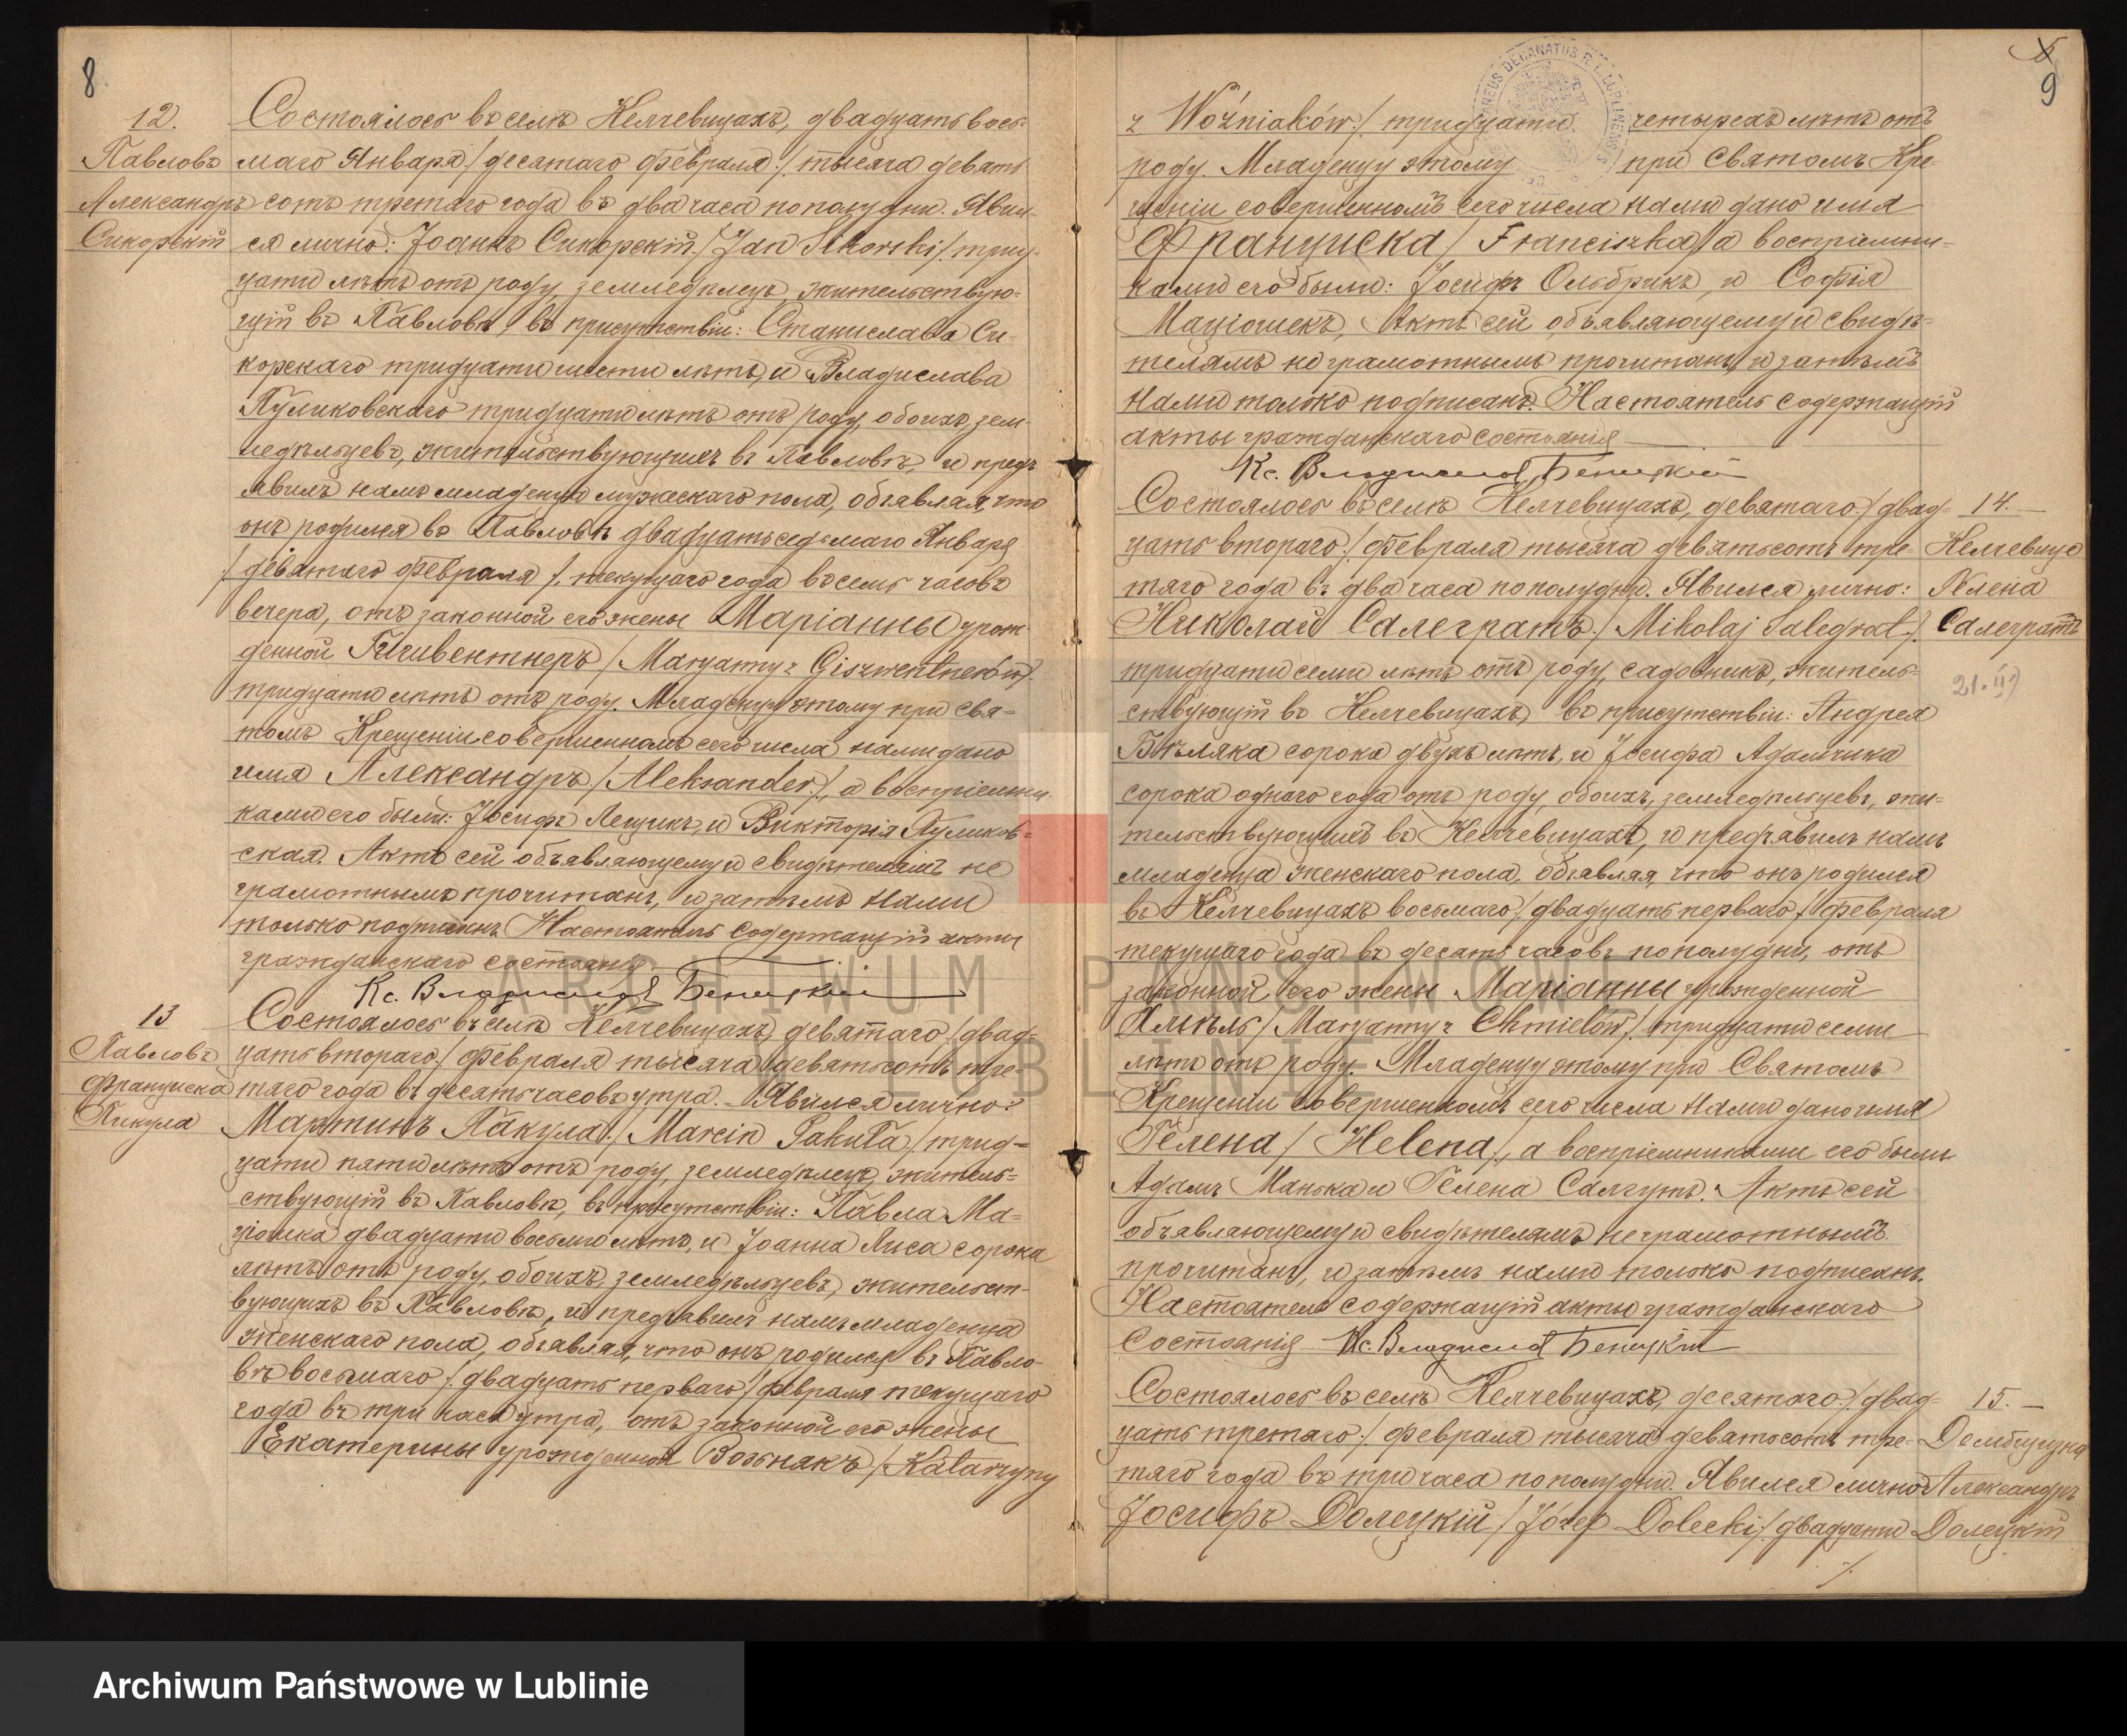 8
12.
Павловъ
Александръ
Сикорскій
Состоялось въ селѣ Келчевицахъ, двадцать вось-
маго Января /десятаго Февраля/ тысяча девять
сотъ третьяго года въ два часа по полудни. Явил-
ся лично: Іоаннъ Сикорскій /Jan Sikorski/ трид-
цати лѣтъ отъ роду, земледѣлецъ, жительствую-
щій въ Павловѣ, въ присутствіи: Станислава Си-
корскаго тридцати шести лѣтъ, и Владислава
Куликовскаго тридцати лѣтъ отъ роду, обоихъ зем-
ледѣльцевъ, жительствующихъ въ Павловѣ, и предъ
явилъ намъ младенца мужескаго пола, объявляя, что
онъ родился въ Павловѣ двадцать седьмаго Января
/девятаго Февраля/ текущаго года въ семь часовъ
вечера, отъ законной его жены Маріанны урож-
денной Гишвентнеръ /Maryanny z Giszwentnerów/
тридцати лѣтъ отъ роду. Младенцу этому при Свя-
томъ Крещеніи совершенномъ сего числа нами дано
имя Александръ /Aleksander/, а воспріемни-
ками его были: Іосифъ Лещикъ, и Викторія Куликов-
ская. Актъ сей объявляющему и свидѣтелямъ не
грамотнымъ прочитанъ, и затѣмъ нами
только подписанъ. Настоятель содержащій акты
гражданскаго состоянія
Кс. Владиславъ Беницкій
13
Павловъ
Франциска
Пакула
Состоялось въ селѣ Келчевицахъ, девятаго /двад-
цать втораго/ Февраля тысяча девятьсотъ тре-
тяго года въ десять часовъ утра. Явился лично:
Мартинъ Пакула /Marcin Pakuła/ трид-
цати пяти лѣтъ отъ роду, земледѣлецъ, житель-
ствующій въ Павловѣ, въ присутствіи: Павла Ма-
ціошка двадцати восьми лѣтъ, и Іоанна Лиса сорока
лѣтъ отъ роду, обоихъ, земледѣльцевъ, жительст-
вующихъ въ Павловѣ, и предъявилъ намъ младенца
женскаго пола, объявляя, что онъ родился въ Павло-
вѣ восьмаго /двадцать перваго/ Февраля текущаго
года въ три часа утра, отъ законной его жены
Екатерины урожденной Возьнякъ /Katarzyny
9
z Woźniaków/ тридцати четырехъ лѣтъ отъ
роду. Младенцу этому при Святомъ Кре-
щеніи совершенномъ сего числа нами дано имя
Франциска /Franciszka/ а воспріемни-
ками его были: Іосифъ Ольбрикъ, и Софія
Маціошекъ, Актъ сей объявляющему и свидѣ-
телямъ неграмотнымъ прочитанъ, и затѣмъ
нами только подписанъ. Настоятель содержащій
акты гражданскаго состоянія
Кс. Владиславъ Беницкій
14.
Келчевице
Гелена
Салеградъ
21.II
Состоялось въ селѣ Келчевицахъ, девятаго /двад-
цать втораго/ Февраля тысяча девятьсотъ тре-
тяго года въ два часа по полудни. Явился лично:
Николай Салеградъ /Mikołaj Salegrat/
тридцати семи лѣтъ отъ роду, садовникъ, житель-
ствующій въ Келчевицахъ, въ присутствіи: Андрея
Бѣляка сорока двухъ лѣтъ, и Іосифа Адамчика
сорока одного года отъ роду, обоихъ, земледѣльцевъ, жи-
тельствующихъ въ Келчевицахъ, и предъявилъ намъ
младенца женскаго пола, объявляя, что онъ родился
въ Келчевицахъ восьмаго /двадцать перваго/ Февраля
текущаго года въ десять часовъ по полудни, отъ
законной его жены Маріанны урожденной
Хмѣль /Maryanny z Chmielów/ тридцати семи
лѣтъ отъ роду. Младенцу этому при Святомъ
Крещеніи совершенномъ сего числа нами дано имя
Гелена /Helena/, а воспріемниками его были
Адамъ Манька и Гелена Салгутъ. Актъ сей
объявляющему и свидѣтелямъ неграмотнымъ
прочитанъ, и затѣмъ нами только подписанъ.
Настоятель содержащій акты гражданскаго
состоянія Кс. Владиславъ Беницкій
15.
Дембщизна
Александръ
Долецкій
Состоялось въ селѣ Келчевицахъ, десятаго /двад-
цать третьяго/ Февраля тысяча девятьсотъ тре-
тяго года въ три часа по полудни. Явился лично
Іосифъ Долецкій /Józef Dolecki/ двадцати
ARCHIWUM PAŃSTWOWE
W LUBLINIE
Archiwum Państwowe w Lublinie